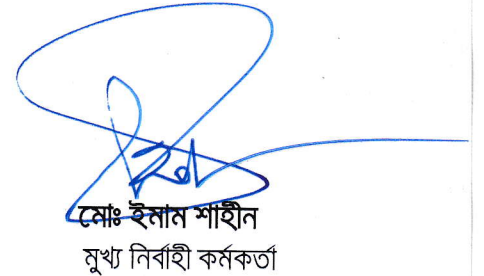 মোঃ ইমাম শাহীন
মুখ্য নির্বাহী কর্মকর্তা